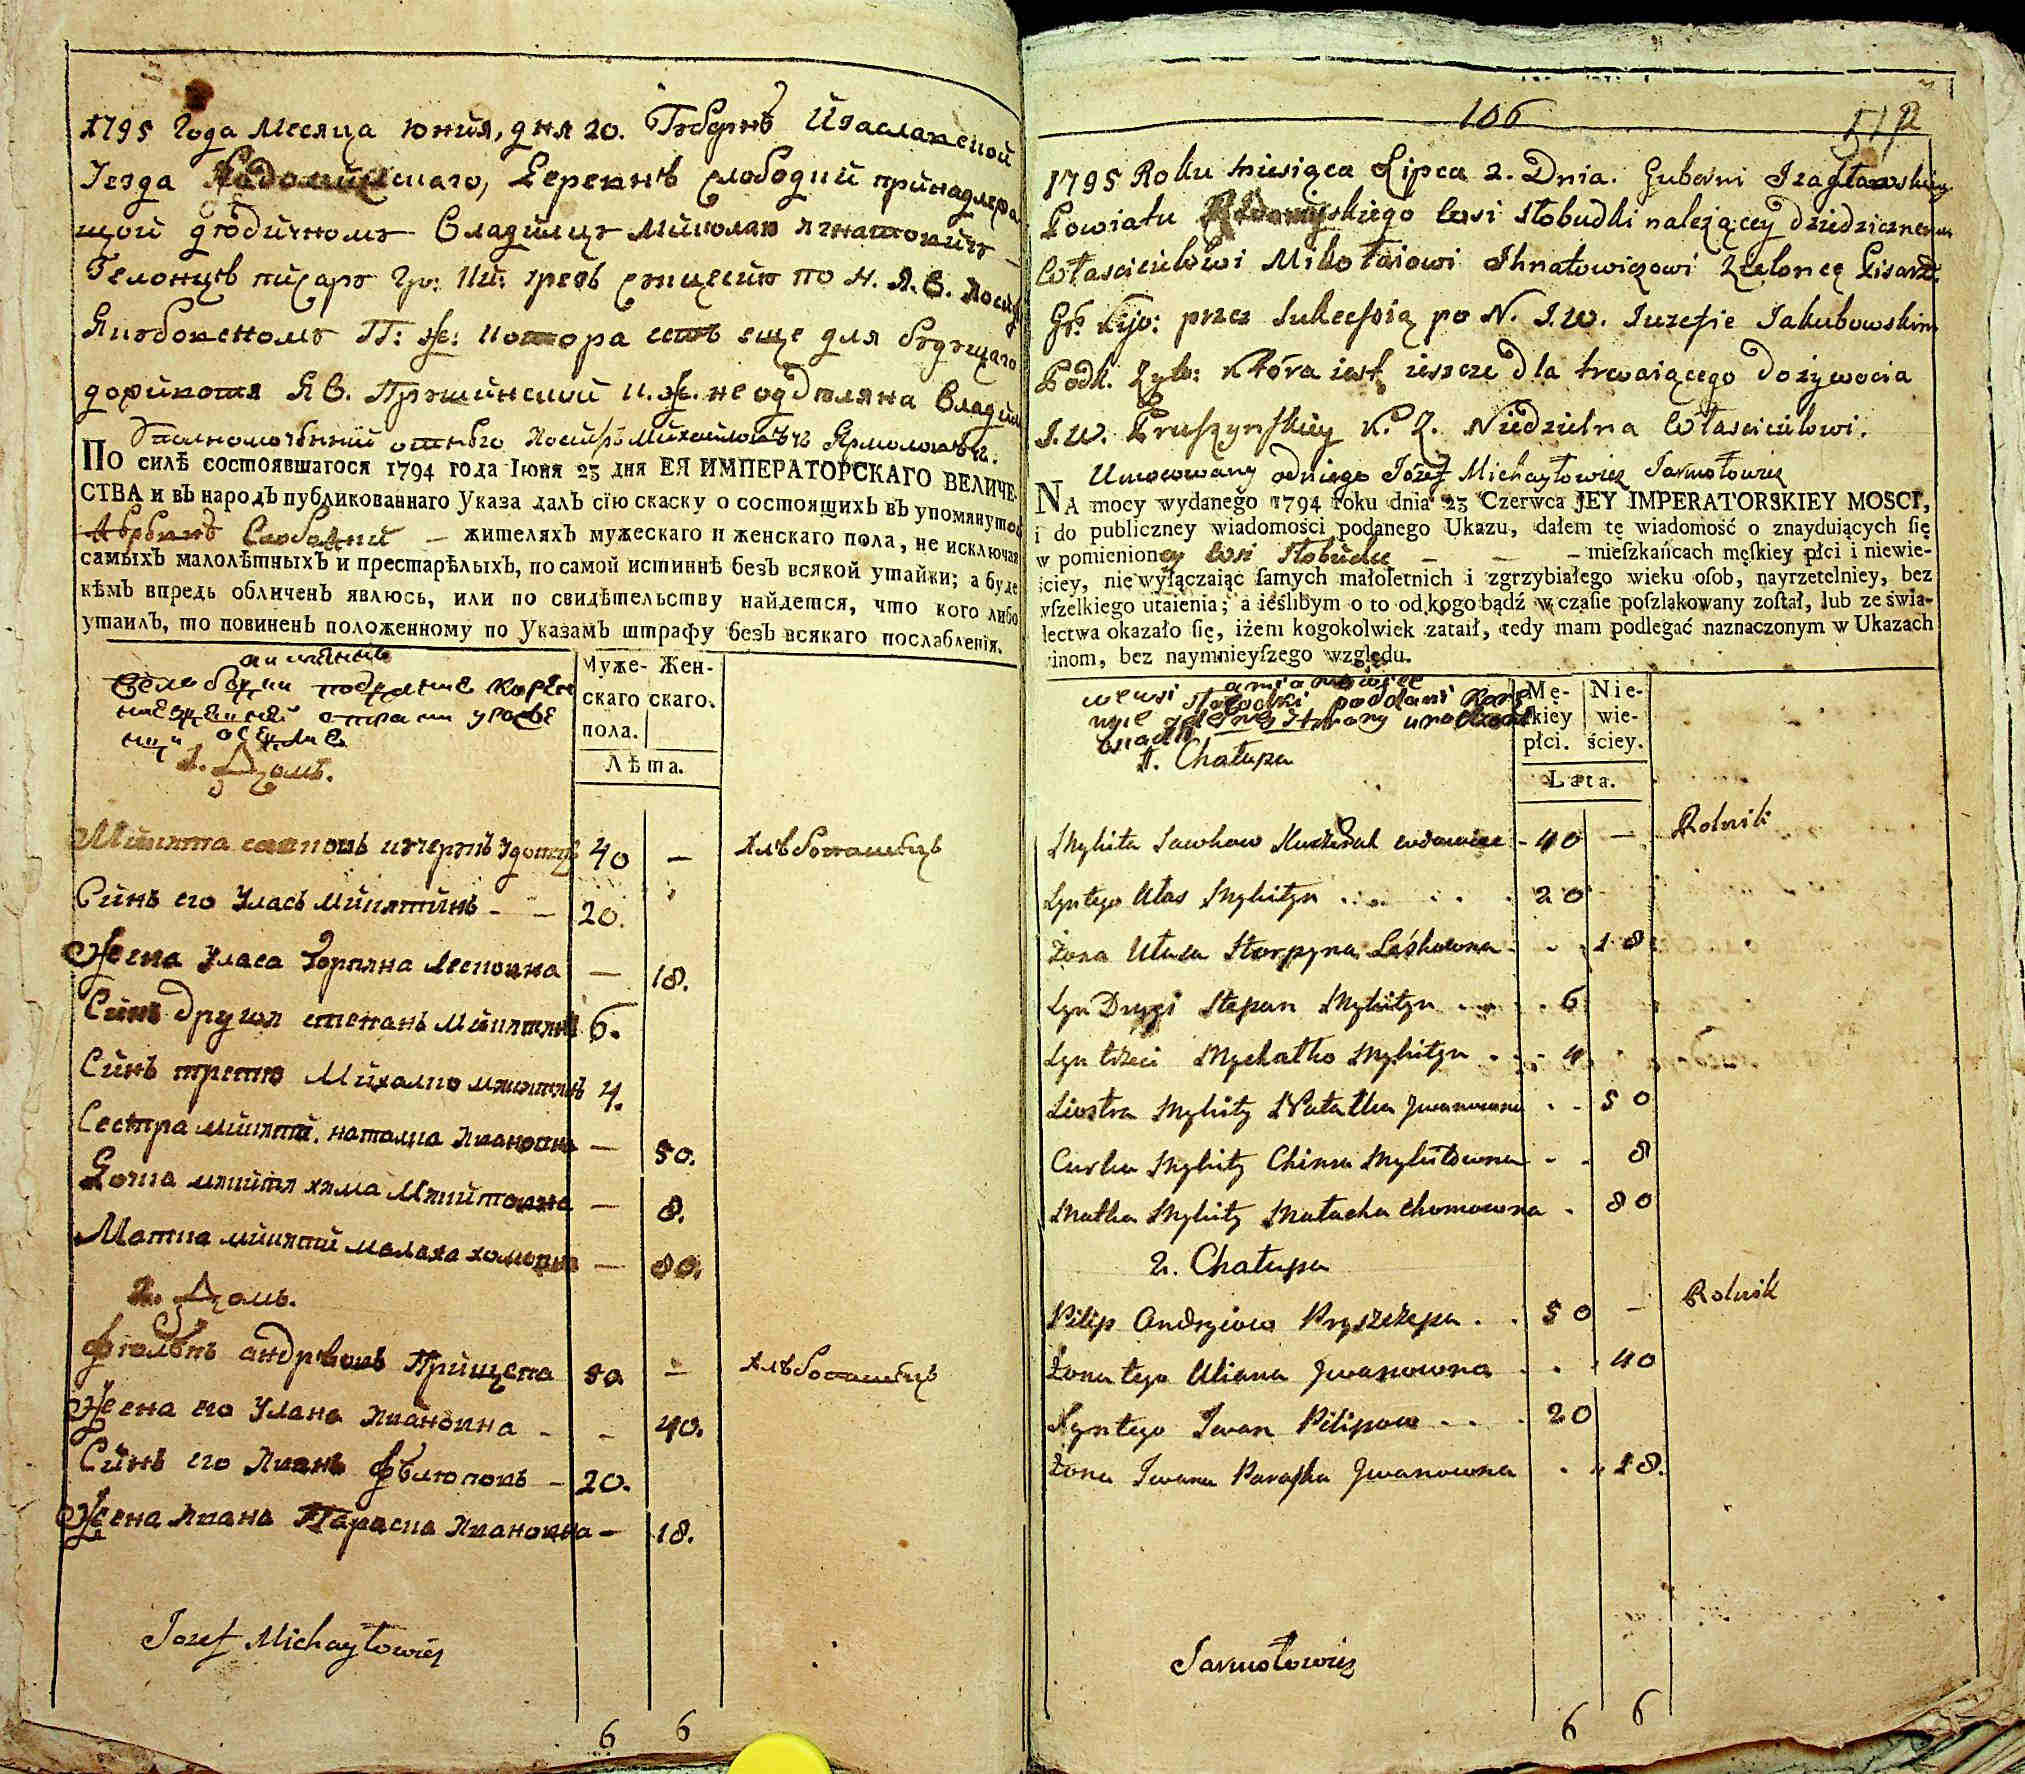 1795 Года Месяца Юния, дня 20. Губерни Изаславской
Уезда Радомишскаго, Деревнѣ слободки принадлежа
щой дѣдичному Владилцу Миколаю Игнатовичу
Гелонцѣ писарю Гр: Ки: чрезь сукцесию по Н. Я. В.
Якубовскому П: Ж: котора есть еще для будущаго
доживотя Я В. Прушинской К. Ж. не оддѣляна Владил
Уполномоченний отнего Иосифъ Михайловъ Ярмоловъ.
ПО силѣ состоявшагося 1794 года Іюня 23 дня ЕЯ ИМПЕРАТОРСКАГО ВЕЛИЧЕ-
СТВА и въ народъ публикованнаго Указа далъ сію скаску о состоящихъ въ упомянутой
Деревнѣ Слободкй — жителяхъ мужескаго и женскаго пола, не исключая
самыхъ малолѣтныхъ и престарѣлыхъ, по самой истиннѣ безъ всякой утайки; а буде
кѣмъ впредь обличенъ явлюсь, или по свидѣтельству найдется, что кого либо
утаилъ, то повиненъ положенному по Указамъ штрафу безъ всякаго послабленія.
а именно
Муже- Жен-
скаго скаго.
пола.
Лѣта.
1. Домъ.
Микита 40 — хлѣбопашецъ
Синъ его Уласъ Микитинъ - — 20.
Жена Уласа Лесковна — 18.
Синъ другой степанъ Микитинъ 6.
Синъ третю Михалко Микитинъ 4.
Сестра микити наталка Ивановна — 50.
Дочка микити хима Микитовна — 8.
Матка микити малаха хомовна — 80.
2. Домъ.
андрѣовъ Прищепа 50 — хлѣбопашецъ
Жена его Уляна Ивановна - - 40.
Синъ его Иванъ - 20.
Жена Ивана Параска Ивановна — 18.
Jozef Michayłowicz
6 6
106
1795 Roku miesiąca Lipca 2. Dnia. Guberni Izasławskiey
Powiatu Radomyskiego wsi Słobudki należącey dziedzicznemu
Właścicielowi Mikołaiowi Ihnatowiczowi Zeloncę Pisarz.
Gr. Kijo: przez Sukcessią po N. J. W. Juzefie Jakubowskim
Podk. Żyto: która iest ieszcze dla trwaiącego dożywocia
J. W. Pruszynskiey K. Ż. Niedzielna Właścicielowi.
Umocowany odniego Józef Michayłowicz Jarmołowicz
NA mocy wydanego 1794 roku dnia 23 Czerwca JEY IMPERATORSKIEY MOSCI,
i do publiczney wiadomości podanego Ukazu, dałem tę wiadomość o znayduiących się
w pomienioney wsi Słobudce — — — mieſzkańcach męſkiey płci i niewie-
ściey, nie wyłączaiąc ſamych małoletnich i zgrzybiałego wieku oſob, nayrzetelniey, bez
wſzelkiego utaienia; a ieślibym o to od kogo bądź w czaſie poſzlakowany zoſtał, lub ze świa-
dectwa okazało się, iżem kogokolwiek zataił, tedy mam podlegać naznaczonym w Ukazach
winom, bez naymnieyſzego względu.
a mianowicie
we wsi Słobodki poddani
Mę- Nie-
skiey wie-
płci. ściey.
Lata.
1. Chałupa
Mykita Sawkow Kucheral wdowiec - 40 — Rolnik
Syn tego Ułas Mykityn . . . . . 20
Żona Ułasa Horpyna Leśkowna . . 18
Syn Drugi Stepan Mykityn . . . 6
Syn trzeci Mychałko Mykityn . . - 4
Siostra Mykity Natalka Jwanowna . . 50
Curka Mykity Chima Mykitowna . . 8
Matka Mykity Małacha Chomowna . 80
2. Chałupa
Pilip Andryiow Pryszczepa . . 50 — Rolnik
Żona tego Uliana Jwanowna . . 40
Syn tego Iwan Pilipow . . . 20
Żona Iwana Paraska Jwanowna . . 18.
Jarmołowicz
6 6